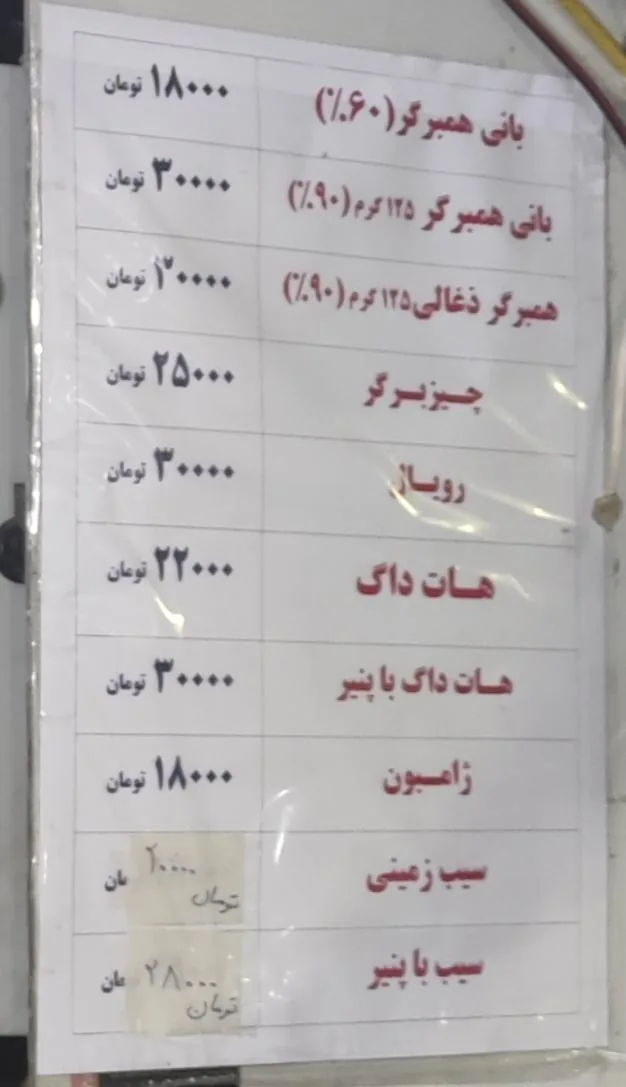 بانی همبرگر (۶۰٪) ۱۸۰۰۰ تومان
بانی همبرگر ۱۲۵ گرم (۹۰٪) ۳۰۰۰۰ تومان
همبرگر ذغالی ۱۲۵ گرم (۹۰٪) تومان
چیزبرگر ۲۵۰۰۰ تومان
رویال ۳۰۰۰۰ تومان
هات داگ ۲۲۰۰۰ تومان
هات داگ با پنیر ۳۰۰۰۰ تومان
ژامبون ۱۸۰۰۰ تومان
سیب زمینی ۲۰۰۰۰ تومان
سیب با پنیر ۲۸۰۰۰ تومان